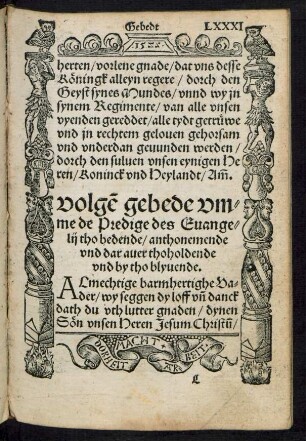 Gebedt
LXXXI
1522
herten / vorlene gnade / dat vns desse
Köningk alleyn regere / dorch den
Geyst synes Mundes / vnnd wy jn
synem Regimente / van alle vnsen
vyenden gereddet / alle tydt getrüwe
vnd jn rechtem gelouen gehorsam
vnd vnderdan geuunden werden /
dorch den suluen vnsen eynigen He
ren / Köninck vnd Heylandt / Am̃.
Volgẽ gebede vm-
me de Predige des Euange-
lij tho bedende / anthonemende
vnd dar auer thoholdende
vnd by tho blyuende.
ALmechtige barmhertighe Va-
der / wy seggen dy loff vñ danck
dath du vth lutter gnaden / dynen
Sön vnsen Heren Jesum Christũ /
MACHT
L